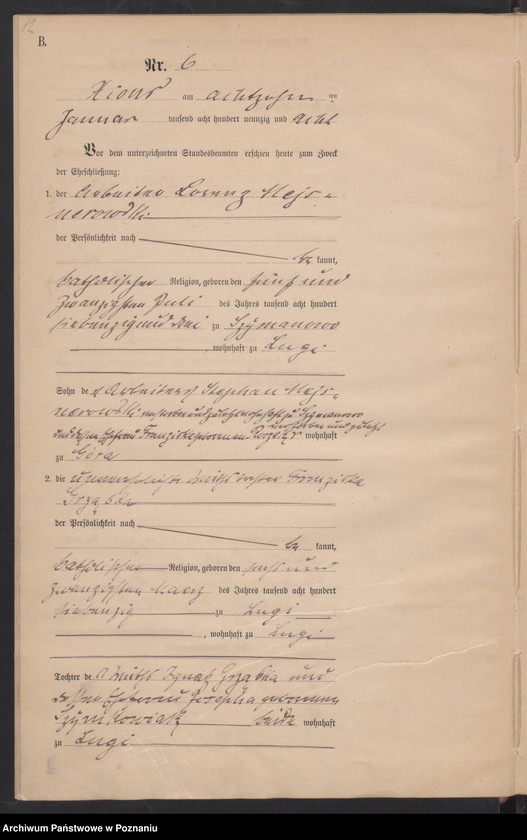 12
B.
Nr. 6
Xions am achtzehn ten
Januar tausend acht hundert neunzig und acht
Vor dem unterzeichneten Standesbeamten erschien heute zum Zweck
der Eheschließung:
1. der Arbeiter Lorenz Mejs-
nerowski
der Persönlichkeit nach
be kannt,
katholischer Religion, geboren den fünf und
zwanzigsten Juli des Jahres tausend acht hundert
siebenzig und drei zu Szymanowo
, wohnhaft zu Lugi
Sohn des Arbeiters Stephan Mejs-
nerowski verstorben und zuletzt wohnhaft zu Szymanowo
und dessen Ehefrau Franziska geborenen verstorben und zuletzt wohnhaft
zu Góra
2. die unverehelichte Franziska
Grząska
der Persönlichkeit nach
be kannt,
katholischer Religion, geboren den und
zwanzigsten März des Jahres tausend acht hundert
siebenzig zu Lugi
, wohnhaft zu Lugi
Tochter des Ignatz Grząska und
dessen Ehefrau Josepha geborenen
Szymkowiak beide wohnhaft
zu Lugi
Archiwum Państwowe w Poznaniu